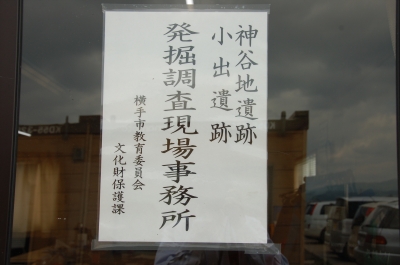 神谷地遺跡
小出遺跡
発掘調査現場事務所
横手市教育委員会
文化財保護課